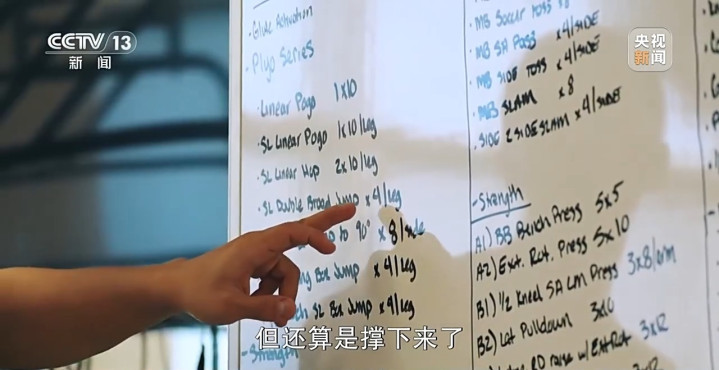 CCTV 13
新闻
央视
新闻
· Glute Activation
- Plyo Series
· Linear Pogo 1x10
· SL Linear Pogo 1x10/leg
· SL Linear Hop 2x10/leg
· SL Double Broad Jump x4/leg
to 90° x 8/side
Box Jump x4/leg
SL Box Jump x4/leg
- Strength
· MB Soccer Toss x8
· MB SA Pass x4/SIDE
· MB SIDE TOSS x4/SIDE
· MB SLAM x8
· SIDE 2 SIDE SLAM x4/SIDE
- Strength
A1) BB Bench Press 5x5
A2) Ext. Rot. Press 5x10
B1) 1/2 Kneel SA LM Press 3x8/arm
B2) Lat Pulldown 3x10
RD raise w/ Ext Rot 3x12
3x12
但还算是撑下来了